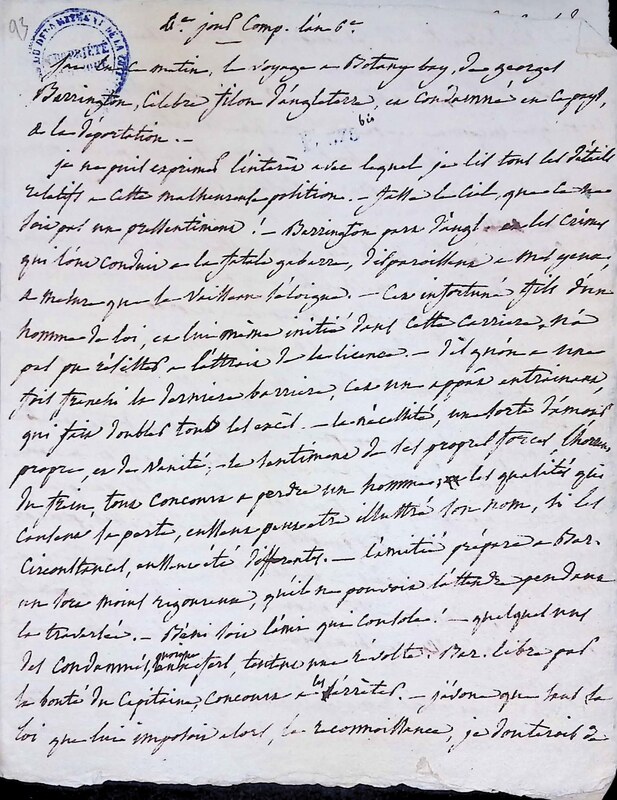 93
1er jour Comp. l'an 6e
ce matin, le voyage a Botany bay, de georges
Barrington, célèbre filou d'angleterre, et Condamné en ce pays,
a la déportation. —
bis
je ne puis exprimer l'interêt avec lequel je lis tous les détails
relatifs a cette malheureuse position. — fasse le Ciel, que ce ne
soit pas un pressentiment ! — Barrington part d'angl. les crimes
qui l'ont conduit a la fatale gabarre, disparoissent a mes yeux,
a mesure que le Vaisseau s'éloigne. — Cet infortuné fils d'un
homme de loi, et lui même initié dans cette Carriere, n'a
pas pu résister a l'attrait de la licence. — Dès qu'on a une
fois franchi la derniere barriere, c'est un appât entrainant,
qui fait doubler tous les excès. — la nécessité, une sorte d'amour
propre, et de vanité, le sentiment de ses propres forces, l'horreur
du frein, tout concourt a perdre un homme, les qualités qui
causent sa perte, eussent peut etre illustré son nom, si les
Circonstances, eussent été differentes. — l'amitié prépare a Bar.
un sort moins rigoureux, qu'il ne pouvoit l'attendre pendant
la traversée. — Béni soit l'ami qui console ! — quelques uns
des Condamnés, quoique aux fers, tentent une révolte. Bar. libre par
la bonté du Capitaine, concourt a les arrêter. — j'avoue que sans la
loi que lui imposoit alors, la reconnoissance, je douterois de